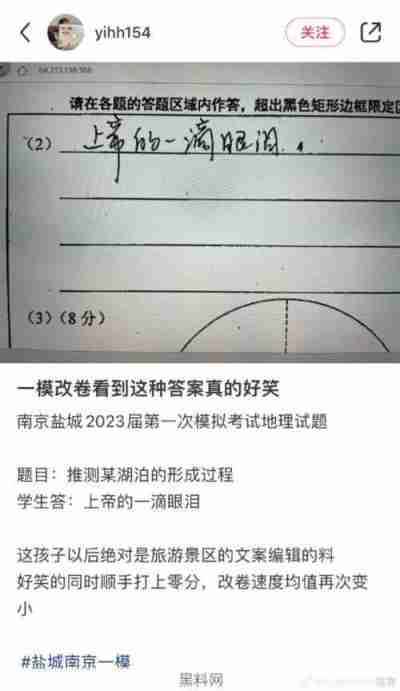 yihh154
关注
请在各题的答题区域内作答，超出黑色矩形边框限定区
(2) 上帝的一滴眼泪.
(3)(8分)
一模改卷看到这种答案真的好笑
南京盐城2023届第一次模拟考试地理试题
题目：推测某湖泊的形成过程
学生答：上帝的一滴眼泪
这孩子以后绝对是旅游景区的文案编辑的料
好笑的同时顺手打上零分，改卷速度均值再次变
小
#盐城南京一模
黑料网